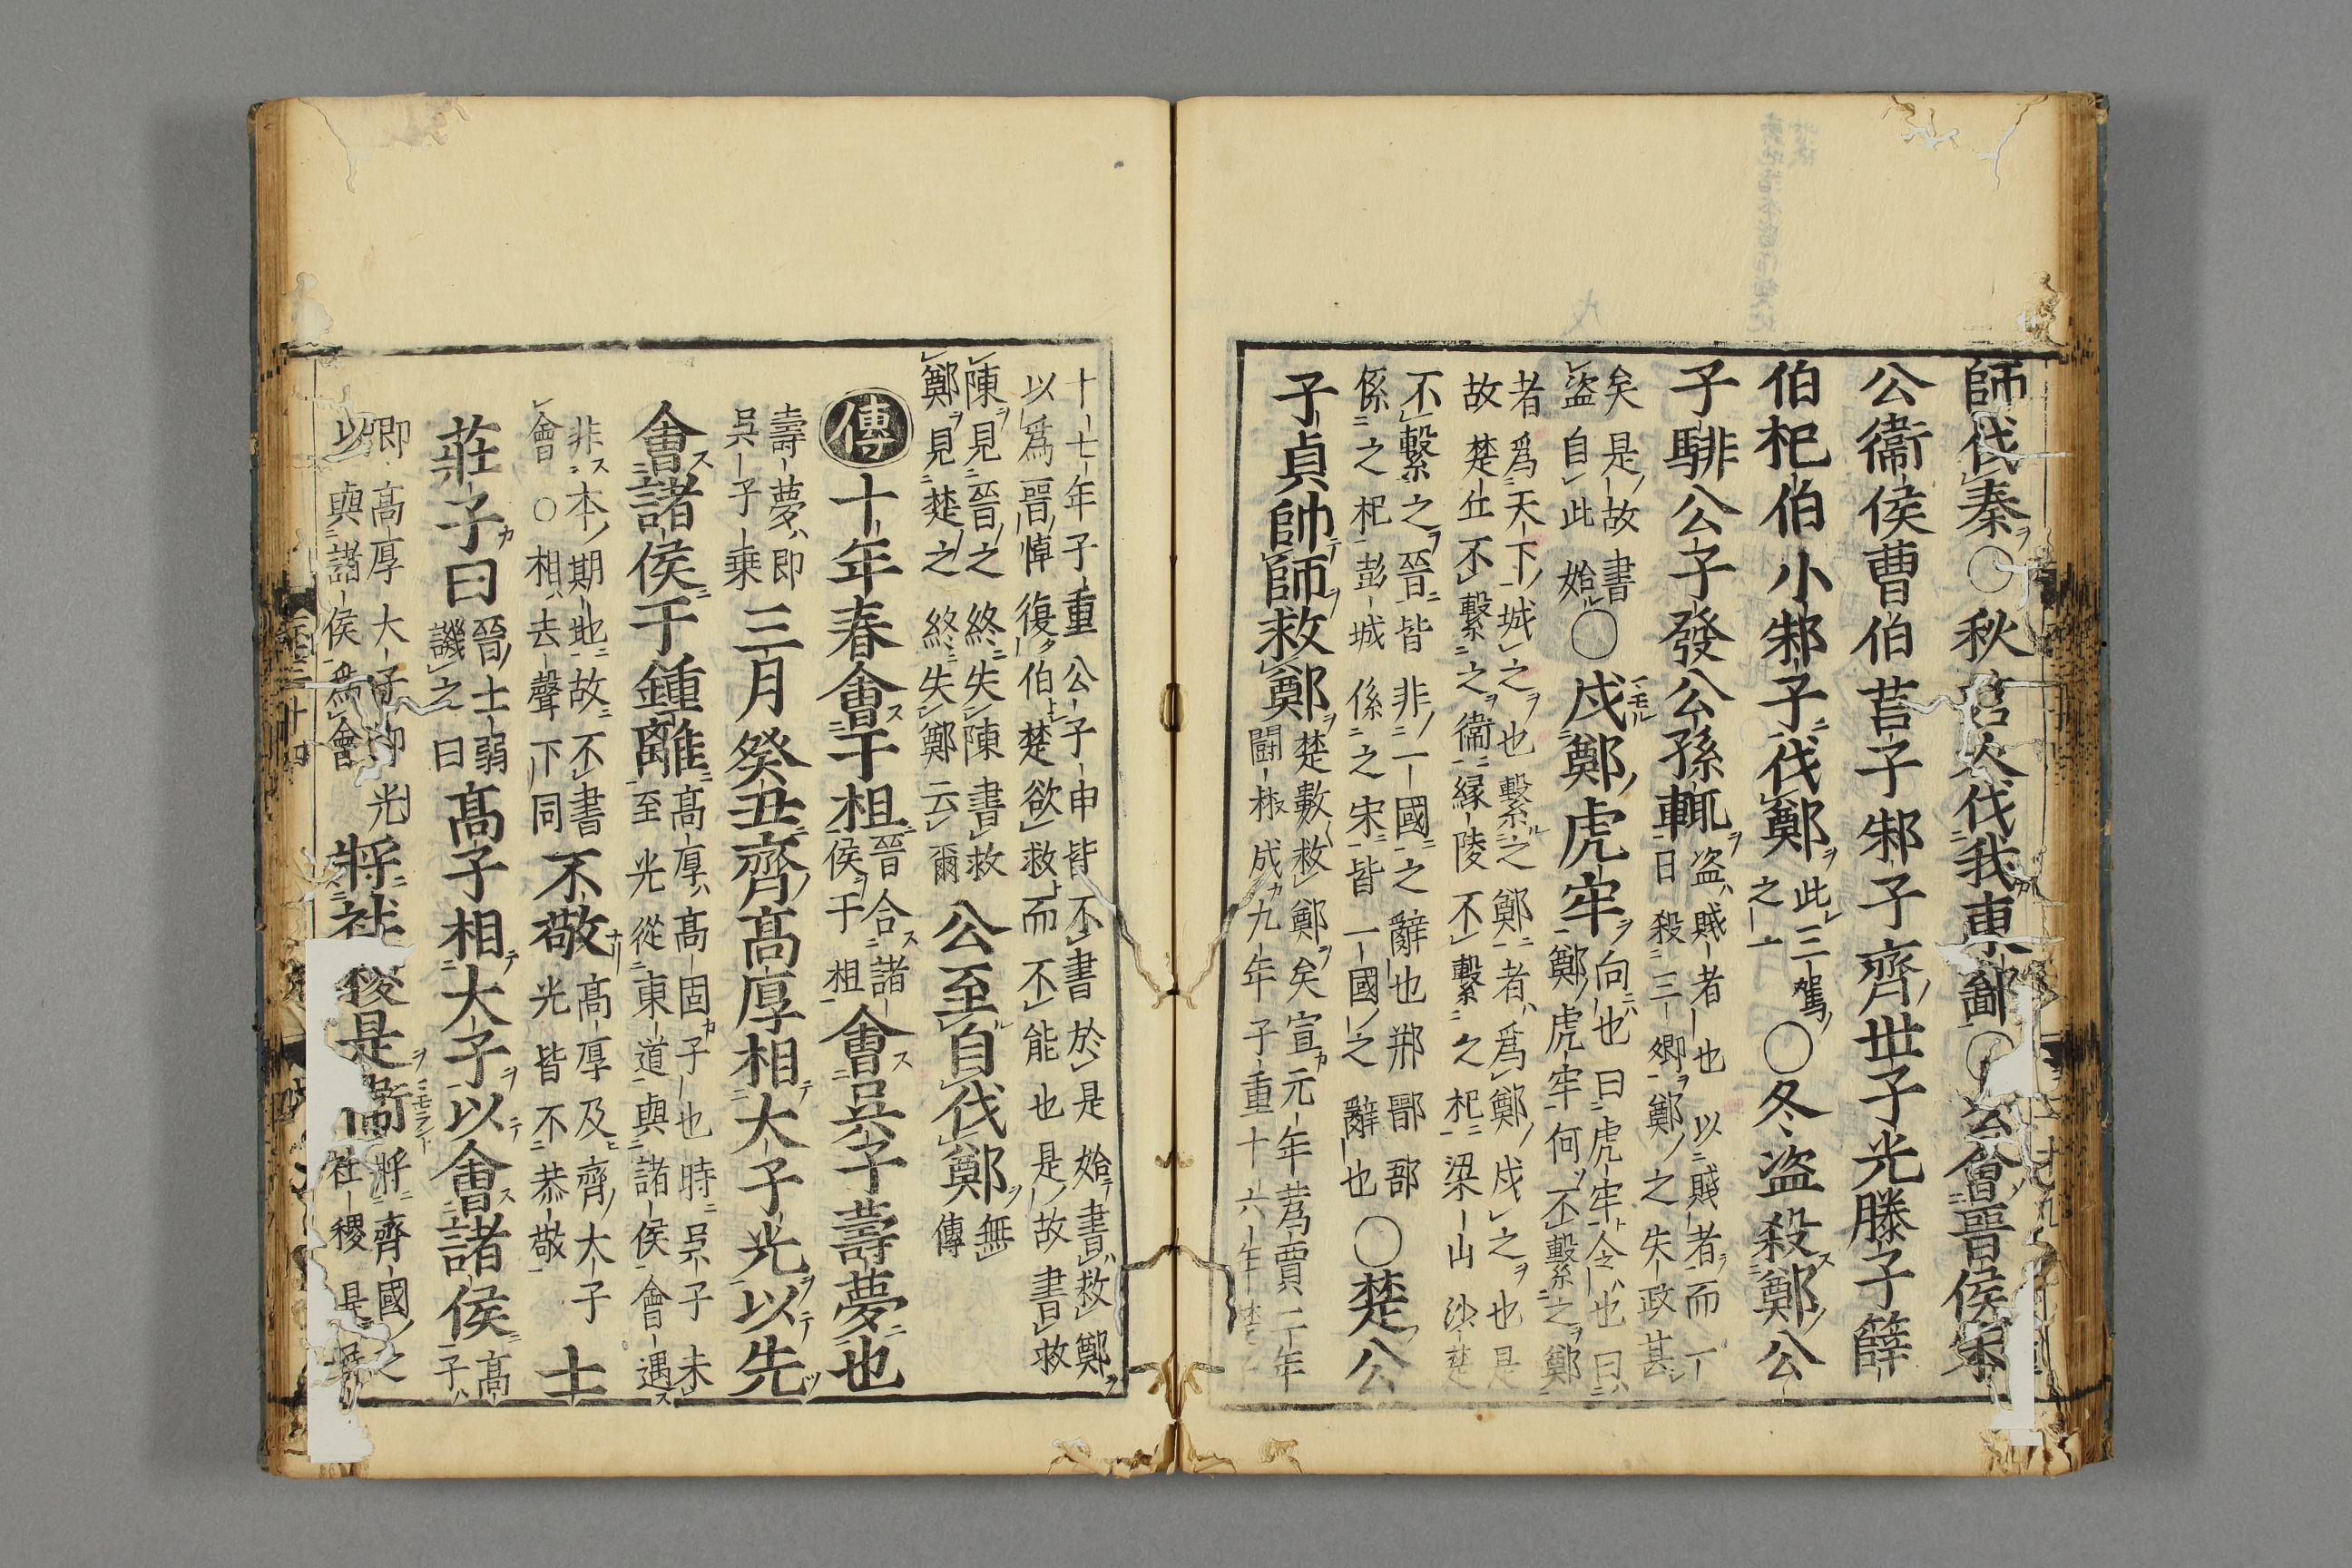 師伐秦○秋莒人伐我東鄙○公會晉侯宋
公衞侯曹伯莒子邾子齊世子光滕子薛
伯杞伯小邾子伐鄭此三駕之一○冬盗殺鄭公
子騑公子發公孫輒盗賊者也以賤者而丁
曰殺三卿鄭之失政甚
矣是故書
盗自此始○戍鄭虎牢向也曰虎牢今也曰
鄭虎牢何不繫之鄭
者爲天下城之也繫之鄭者爲鄭戍之也是
故楚丘不繫之衞緣陵不繫之杞梁山沙
不繫之晉皆非一國之辭也郱鄑郚
係之杞彭城係之宋皆一國之辭也○楚公
子貞帥師救鄭楚數救鄭矣宣元年蔿賈二年
鬭椒成九年子重十六年
十七年子重公子申皆不書於是始書救鄭
以爲晉悼復伯楚欲救而不能也是故書救
陳見晉之終失陳書救
鄭見楚之終失鄭云爾公至自伐鄭無
傳
傳十年春會于柤晉合諸
侯于柤會吳子壽夢也
壽夢即
吳子乗三月癸丑齊髙厚相大子光以先
會諸侯于鍾離髙厚髙固子也時吳子未
至光從東道與諸侯會遇
非本期地故不書
會○相去聲下同不敬髙厚及齊大子
光皆不恭敬士
莊子曰晉士弱
譏之曰髙子相大子以會諸侯髙
子
卿髙厚大子卽光
以與諸侯爲會將社稷是衞將齊國之
社稷是